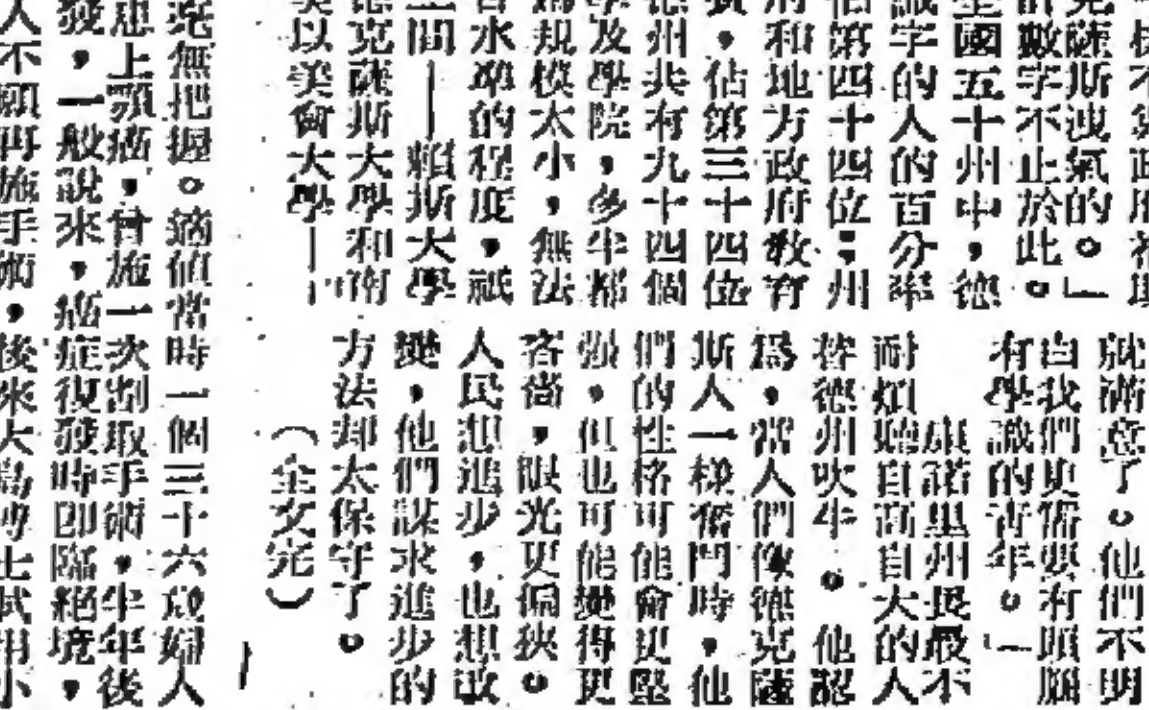 克薩斯洩氣的。」
數字不止於此。
全國五十州中，德
識字的人的百分率
佔第四十四位；州
府和地方政府教育
費，佔第三十四位
德州共有九十四個
學及學院，多半都
為規模太小，無法
水準的程度，祇
間——賴斯大學
德克薩斯大學和南
美以美會大學——
就滿意了。他們不明
白我們更需要有頭腦
有學識的青年。」
康諾里州長最不
耐煩聽自高自大的人
替德州吹牛。他認
爲，當人們像德克薩
斯人一樣奮鬥時，他
們的性格可能會更堅
強，但也可能變得更
吝嗇，眼光更偏狹。
人民想進步，也想改
變，他們謀求進步的
方法却太保守了。
（全文完）
毫無把握。適值當時一個三十六歲婦人
患上顎癌，曾施一次割取手術，半年後
發，一般說來，癌症復發時即臨絕境，
人不願再施手術，後來大鳥博士試用小